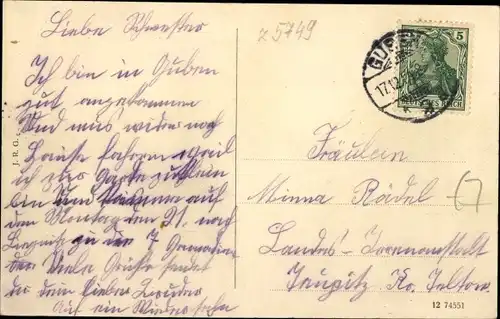 Liebe Schwester
z 5749
Ich bin in Guben
gut angekommen
Und mus wider nach
Hause fahren weil
ich zu
bin und auf
den Montag den 21. nach
Liegnitz zu den 7
Viele Grüße sendet
dir dein lieber Bruder
Auf ein Wiedersehn
J. R. G.
GUBEN
17.12.
5
DEUTSCHES REICH
Fräulein
Minna Rädel
Landes-Irrenanstalt
Teupitz Kr. Teltow
12 74551